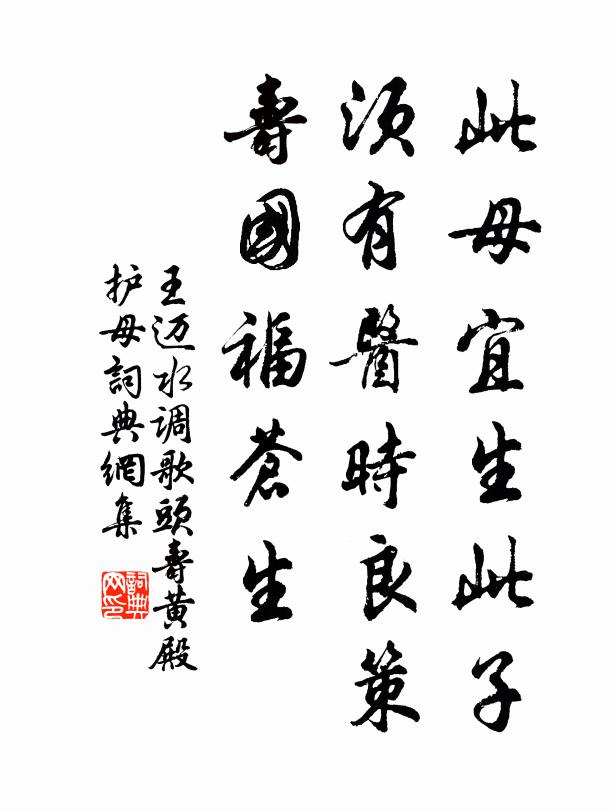 此母宜生此子
須有醫時良策
壽國福蒼生
王迈水调歌頭壽黄殿
护母詞典網集
詞典网印